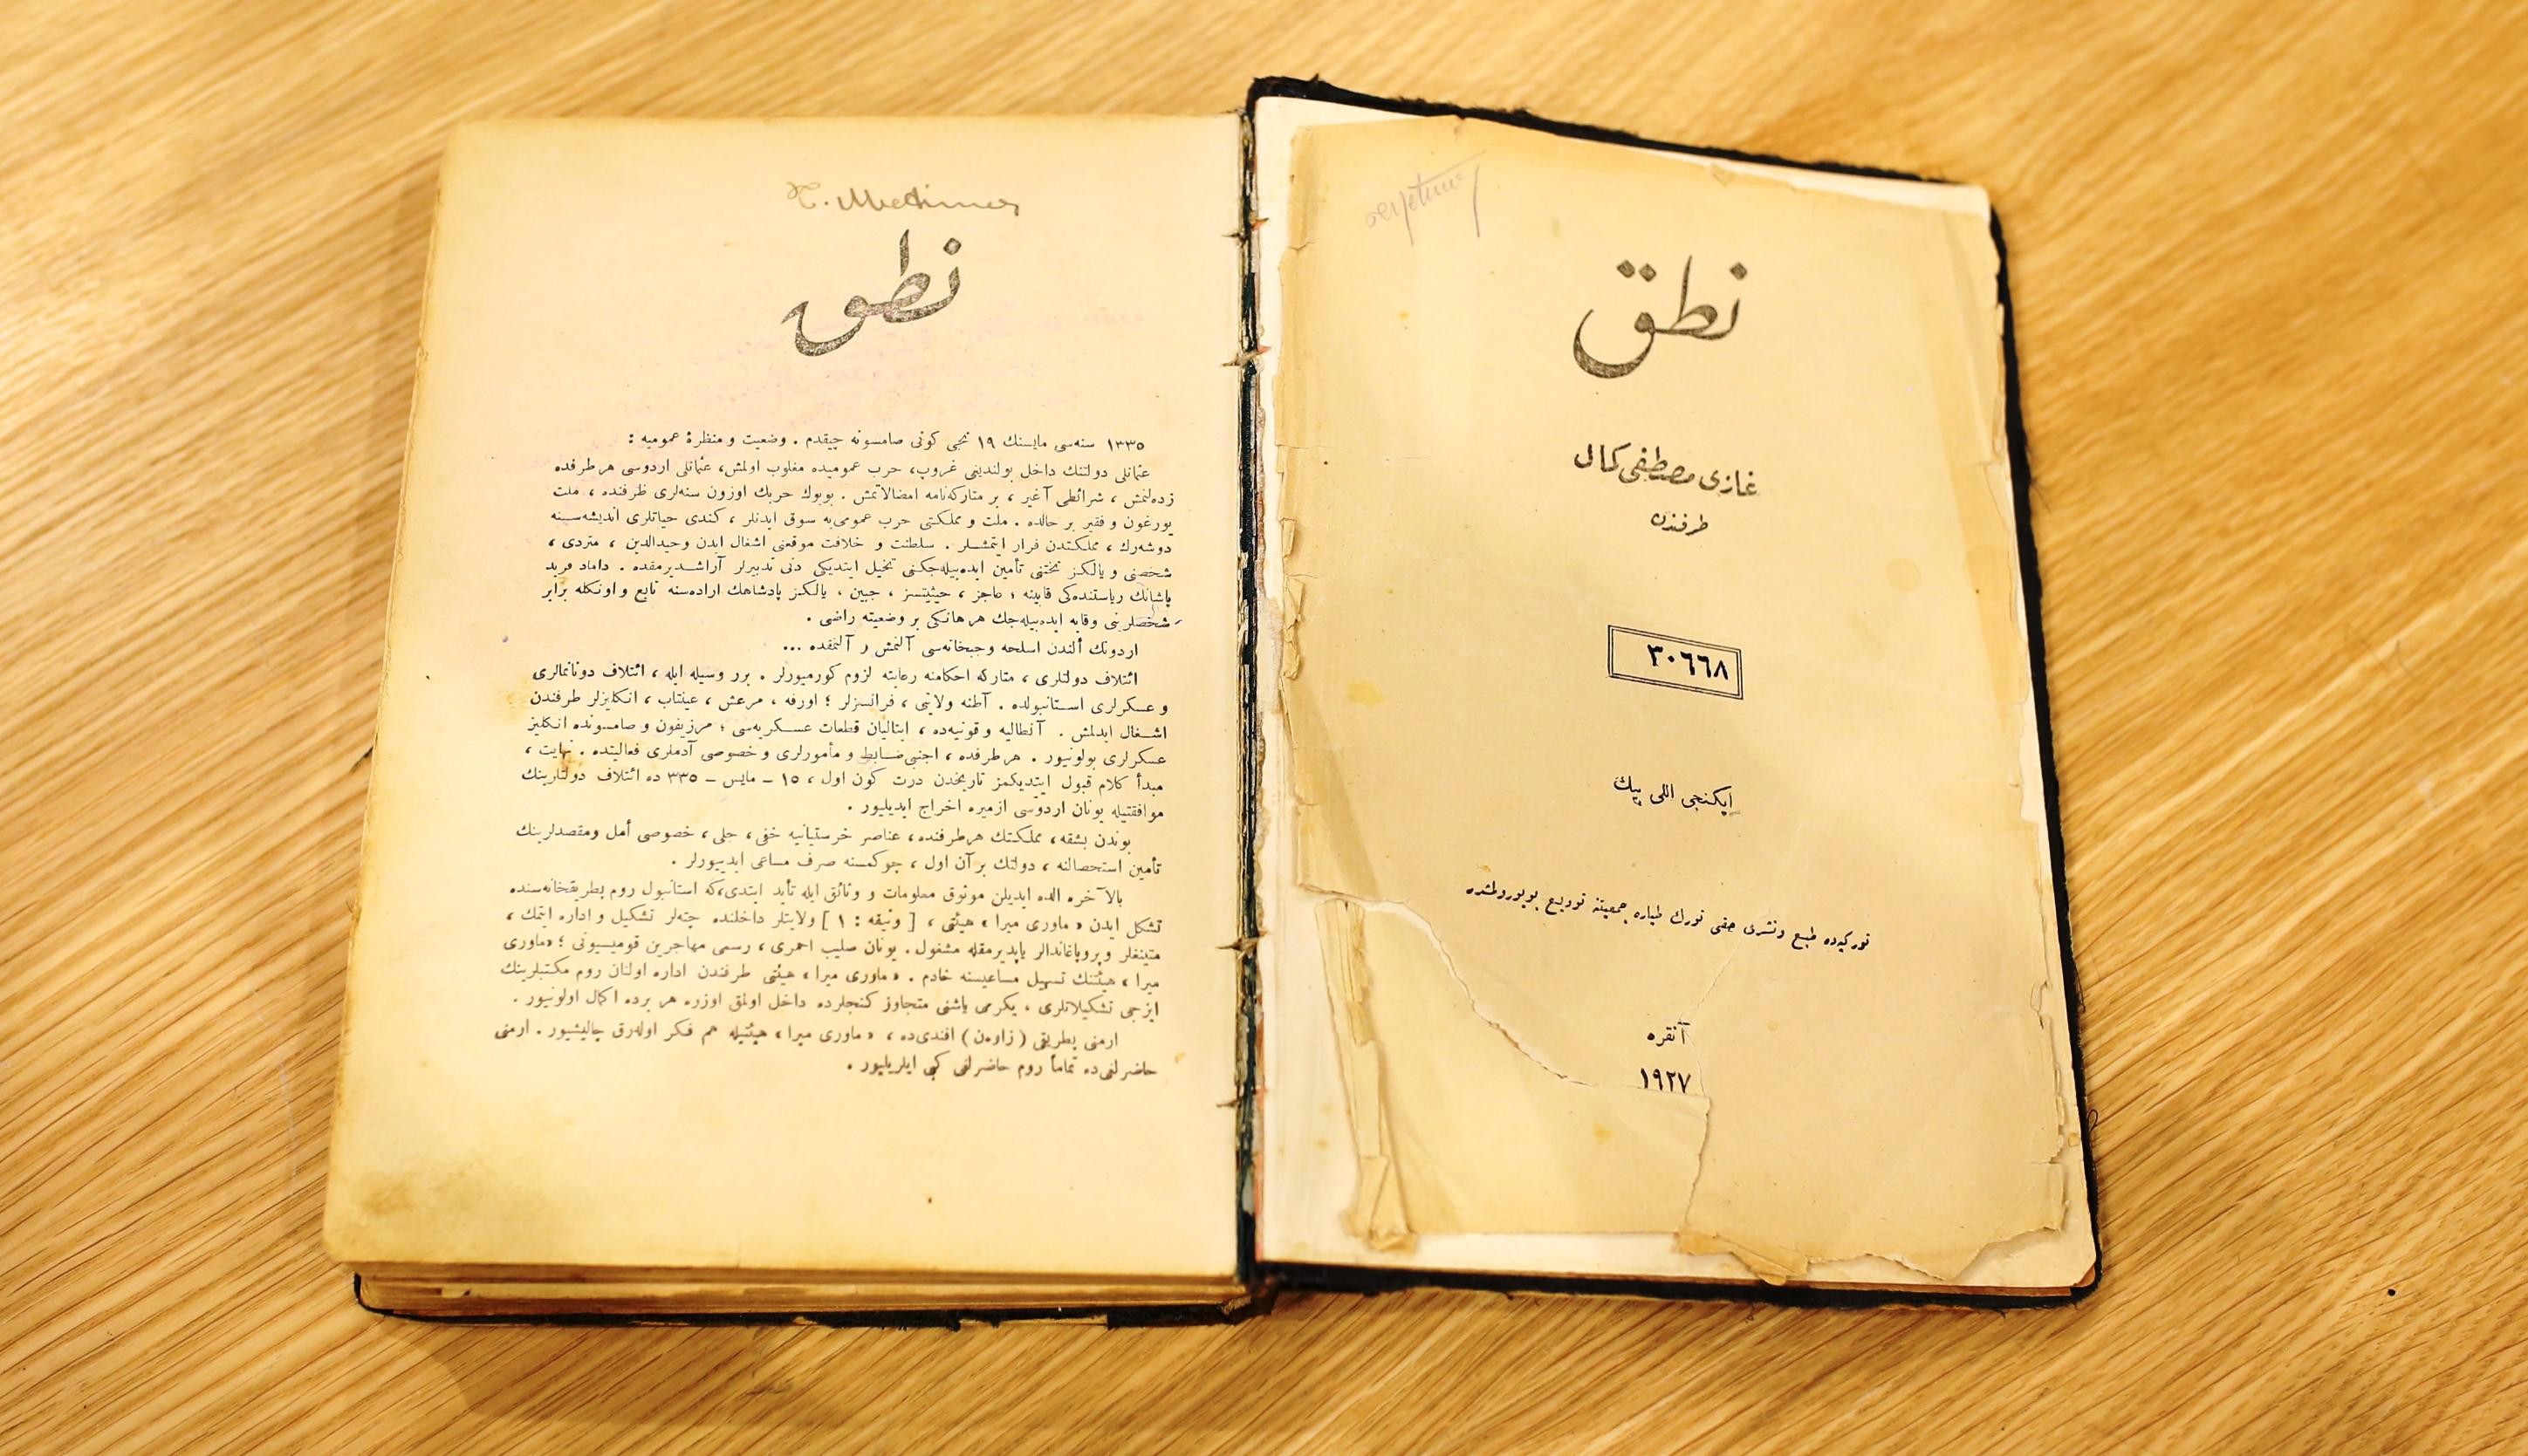 نطق
غازی مصطفی کمال
طرفندن
٣٠٦٦٨
ایکنجی اللی بیك
تورکیه‌ده طبع و نشری حقی تورك طیاره جمعیتنه تودیع بویورولمشدر
آنقره
١٩٢٧
نطق
١٣٣٥ سنه‌سی مایسنك ١٩ نجی کونی صامسونه چیقدم . وضعیت و منظرهٔ عمومیه :
عثمانلی دولتنك داخل بولندیغی غروپ، حرب عمومیده مغلوب اولمش، عثمانلی اردوسی هر طرفده
زده‌لنمش ، شرائطی آغیر ، بر متارکه‌نامه امضالانمش . بویوك حربك اوزون سنه‌لری ظرفنده ، ملت
یورغون و فقیر بر حالده . ملت و مملکتی حرب عمومی‌یه سوق ایدنلر ، کندی حیاتلری اندیشه‌سنه
دوشه‌رك ، مملکتدن فرار ایتمشلر . سلطنت و خلافت موقعنی اشغال ایدن وحیدالدین ، متردی ،
شخصنی و یالکز تختنی تأمین ایده‌بیله‌جکنی تخیل ایتدیکی دنی تدبیرلر آراشدیرمقده . داماد فرید
پاشانك ریاستنده‌کی قابینه ؛ عاجز ، حیثیتسز ، جبین ، یالکز پادشاهك اراده‌سنه تابع و اونکله برابر
شخصلرینی وقایه ایده‌بیله‌جك هر هانکی بر وضعیته راضی .
اردونك ألندن اسلحه و جبخانه‌سی آلنمش و آلنمقده ...
ائتلاف دولتلری ، متارکه احکامنه رعایته لزوم کورمیورلر . برر وسیله ایله ، ائتلاف دونانمالری
و عسکرلری استانبولده . آطنه ولایتی ، فرانسزلر ؛ اورفه ، مرعش ، عینتاب ، انکلیزلر طرفندن
اشغال ایدلمش . آنطالیه و قونیه‌ده ، ایتالیان قطعات عسکریه‌سی ؛ مرزیفون و صامسونده انکلیز
عسکرلری بولونیور . هر طرفده ، اجنبی ضابط و مأمورلری و خصوصی آدملری فعالیتده . نهایت ،
مبدأ کلام قبول ایتدیکمز تاریخدن درت کون اول ، ١٥ ـ مایس ـ ٣٣٥ ده ائتلاف دولتلرینك
موافقتیله یونان اردوسی ازمیره اخراج ایدیلیور .
بوندن بشقه ، مملکتك هر طرفنده ، عناصر خرستیانیه خفی ، جلی ، خصوصی أمل و مقصدلرینك
تأمین استحصالنه ، دولتك بر آن اول ، چوکمسنه صرف مساعی ایدییورلر .
بالآخره الده ایدیلن موثوق معلومات و وثائق ایله تأید ایتدی ، که استانبول روم بطریقخانه‌سنده
تشکل ایدن « ماوری میرا » هیئتی ، [ وثیقه : ١ ] ولایتلر داخلنده چته‌لر تشکیل و اداره ایتمك ،
متینغلر و پروپاغاندالر یاپدیرمقله مشغول . یونان صلیب احمری ، رسمی مهاجرین قومیسیونی ؛ « ماوری
میرا » هیئتنك تسهیل مساعیسنه خادم . « ماوری میرا » هیئتی طرفندن اداره اولنان روم مکتبلرینك
ایزجی تشکیلاتلری ، یکرمی یاشنی متجاوز کنجلرده داخل اولمق اوزره هر یرده اکمال اولونیور .
ارمنی بطریقی ( زاوه‌ن ) افندی‌ده ، « ماوری میرا » هیئتیله هم فکر اوله‌رق چالیشیور . ارمنی
حاضرلغی‌ده تماماً روم حاضرلغی کبی ایلریلیور .